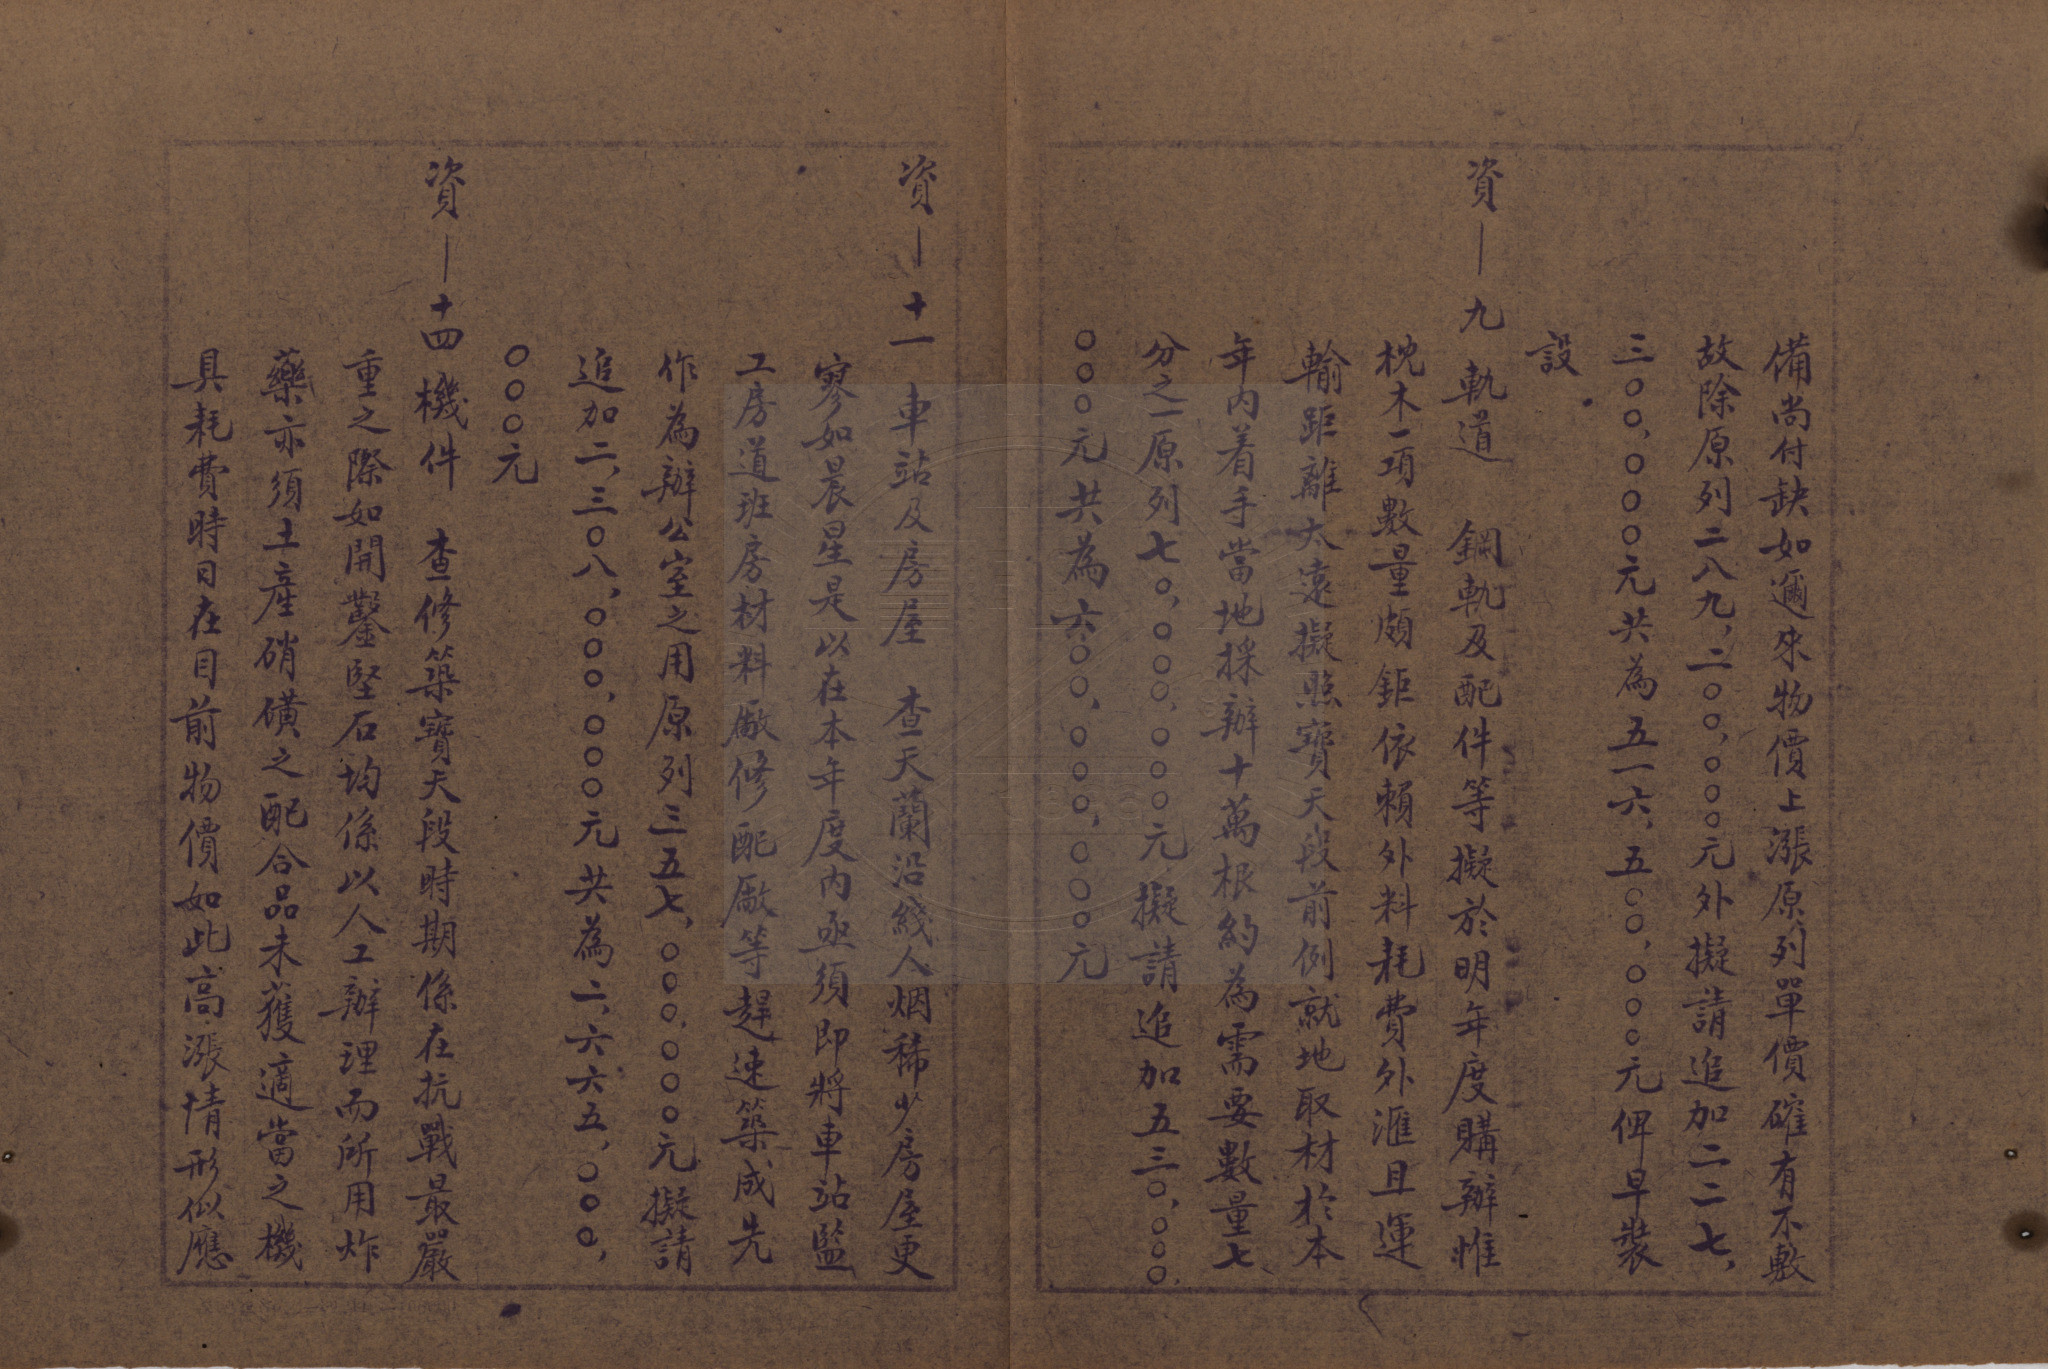 備尚付缺如邇來物價上漲原列單價確有不敷
故除原列二八九,二〇〇,〇〇〇元外擬請追加二二七,
三〇〇,〇〇〇元共為五一六,五〇〇,〇〇〇元俾早裝
設
資—九 軌道 鋼軌及配件等擬於明年度購辦惟
枕木一項數量頗鉅依賴外料耗費外滙且運
輸距離太遠擬照寶天段前例就地取材於本
年內着手當地採辦十萬根約為需要數量七
分之一原列七〇,〇〇〇,〇〇〇元擬請追加五三〇,〇〇〇,
〇〇〇元共為六〇〇,〇〇〇,〇〇〇元
資—十一 車站及房屋 查天蘭沿綫人烟稀少房屋更
寥如晨星是以在本年度內亟須即將車站監
工房道班房材料廠修配廠等趕速築成先
作為辦公室之用原列三五七,〇〇〇,〇〇〇元擬請
追加二,三〇八,〇〇〇,〇〇〇元共為二,六六五,〇〇〇,
〇〇〇元
資—十四 機件 查修築寶天段時期係在抗戰最嚴
重之際如開鑿堅石均係以人工辦理而所用炸
藥亦須土產硝磺之配合品未獲適當之機
具耗費時日在目前物價如此高漲情形似應